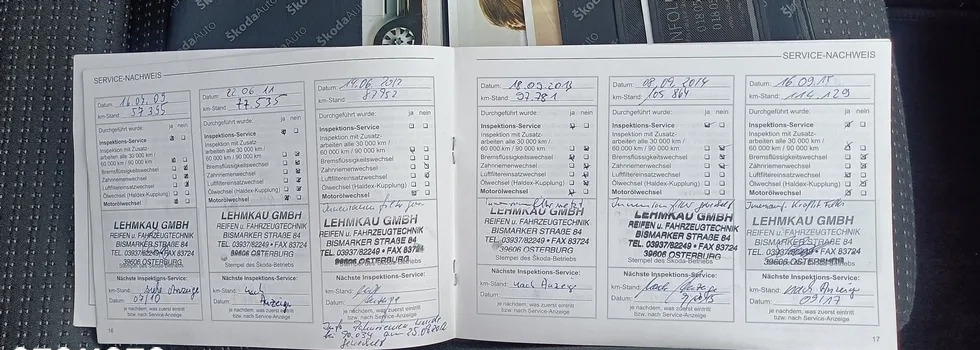 ŠkodaAuto
ŠkodaAuto
ŠkodaAuto
ŠkodaAuto
SERVICE-NACHWEIS
Datum: 16.07.09
km-Stand: 57355
Durchgeführt wurde: ja nein
Inspektions-Service
Inspektion mit Zusatz-
arbeiten alle 30 000 km /
60 000 km / 90 000 km
Bremsflüssigkeitswechsel
Zahnriemenwechsel
Luftfiltereinsatzwechsel
Ölwechsel (Haldex-Kupplung)
Motorölwechsel
LEHMKAU GMBH
REIFEN u. FAHRZEUGTECHNIK
BISMARKER STRAßE 84
TEL. 03937/82249 • FAX 83724
39606 OSTERBURG
Stempel des Skoda-Betriebs
Nächste Inspektions-Service:
km-Stand: siehe Anzeige
Datum: 07/10
je nachdem, was zuerst eintritt
bzw. nach Service-Anzeige
16
Datum: 22.06.11
km-Stand: 77.535
Durchgeführt wurde: ja nein
Inspektions-Service
Inspektion mit Zusatz-
arbeiten alle 30 000 km /
60 000 km / 90 000 km
Bremsflüssigkeitswechsel
Zahnriemenwechsel
Luftfiltereinsatzwechsel
Ölwechsel (Haldex-Kupplung)
Motorölwechsel
LEHMKAU GMBH
REIFEN u. FAHRZEUGTECHNIK
BISMARKER STRAßE 84
TEL. 03937/82249 • FAX 83724
39606 OSTERBURG
Stempel des Skoda-Betriebs
Nächste Inspektions-Service:
km-Stand: nach
Datum: Anzeige
je nachdem, was zuerst eintritt
bzw. nach Service-Anzeige
Datum: 14.06.2012
km-Stand:
Durchgeführt wurde: ja nein
Inspektions-Service
Inspektion mit Zusatz-
arbeiten alle 30 000 km /
60 000 km / 90 000 km
Bremsflüssigkeitswechsel
Zahnriemenwechsel
Luftfiltereinsatzwechsel
Ölwechsel (Haldex-Kupplung)
Motorölwechsel
LEHMKAU GMBH
REIFEN u. FAHRZEUGTECHNIK
BISMARKER STRAßE 84
TEL. 03937/82249 • FAX 83724
39606 OSTERBURG
Stempel des Skoda-Betriebs
Nächste Inspektions-Service:
km-Stand:
Datum: Anzeige
je nachdem, was zuerst eintritt
bzw. nach Service-Anzeige
Zahnriemen wurde
bei 90.034 am 25.09.2012
gewechselt
SERVICE-NACHWEIS
Datum: 18.09.2013
km-Stand: 97.781
Durchgeführt wurde: ja nein
Inspektions-Service
Inspektion mit Zusatz-
arbeiten alle 30 000 km /
60 000 km / 90 000 km
Bremsflüssigkeitswechsel
Zahnriemenwechsel
Luftfiltereinsatzwechsel
Ölwechsel (Haldex-Kupplung)
Motorölwechsel
LEHMKAU GMBH
REIFEN u. FAHRZEUGTECHNIK
BISMARKER STRAßE 84
TEL. 03937/82249 • FAX 83724
39606 OSTERBURG
Stempel des Skoda-Betriebs
Nächste Inspektions-Service:
km-Stand: nach Anzeige
Datum:
je nachdem, was zuerst eintritt
bzw. nach Service-Anzeige
Datum: 08.09.2014
km-Stand: 105 864
Durchgeführt wurde: ja nein
Inspektions-Service
Inspektion mit Zusatz-
arbeiten alle 30 000 km /
60 000 km / 90 000 km
Bremsflüssigkeitswechsel
Zahnriemenwechsel
Luftfiltereinsatzwechsel
Ölwechsel (Haldex-Kupplung)
Motorölwechsel
LEHMKAU GMBH
REIFEN u. FAHRZEUGTECHNIK
BISMARKER STRAßE 84
TEL. 03937/82249 • FAX 83724
39606 OSTERBURG
Stempel des Skoda-Betriebs
Nächste Inspektions-Service:
km-Stand: nach Anzeige
Datum:
je nachdem, was zuerst eintritt
bzw. nach Service-Anzeige
Datum: 16.09.15
km-Stand: 114.129
Durchgeführt wurde: ja nein
Inspektions-Service
Inspektion mit Zusatz-
arbeiten alle 30 000 km /
60 000 km / 90 000 km
Bremsflüssigkeitswechsel
Zahnriemenwechsel
Luftfiltereinsatzwechsel
Ölwechsel (Haldex-Kupplung)
Motorölwechsel
LEHMKAU GMBH
REIFEN u. FAHRZEUGTECHNIK
BISMARKER STRAßE 84
TEL. 03937/82249 • FAX 83724
39606 OSTERBURG
Stempel des Skoda-Betriebs
Nächste Inspektions-Service:
km-Stand: nach Anzeige
Datum: 09/17
je nachdem, was zuerst eintritt
bzw. nach Service-Anzeige
17